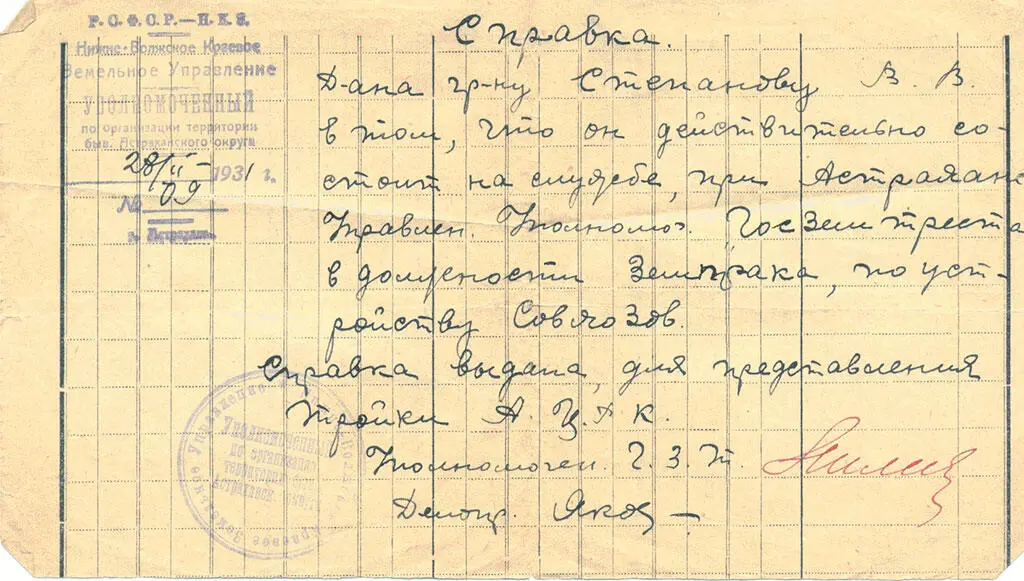 Р. С. Ф. С. Р. — Н. К. З.
Нижне-Волжское Краевое
Земельное Управление
УПОЛНОМОЧЕННЫЙ
по организации территории
быв. Астраханского округа
28/II – 1931 г.
№ 09
г. Астрахань.
Справка.
Дана гр-ну Степанову В. В.
в том, что он действительно со-
стоит на службе, при Астрахан
Управлен. Уполномоч. Госземтреста
в должности Земпрака, по уст-
ройству Совхозов.
Справка выдана, для представления
тройки А. Ц. Р. К.
Уполномочен. Г. З. Т.
Делопр.
Земельное Управление
Уполномоченный
по организации
территории быв.
Астраханск. окр.